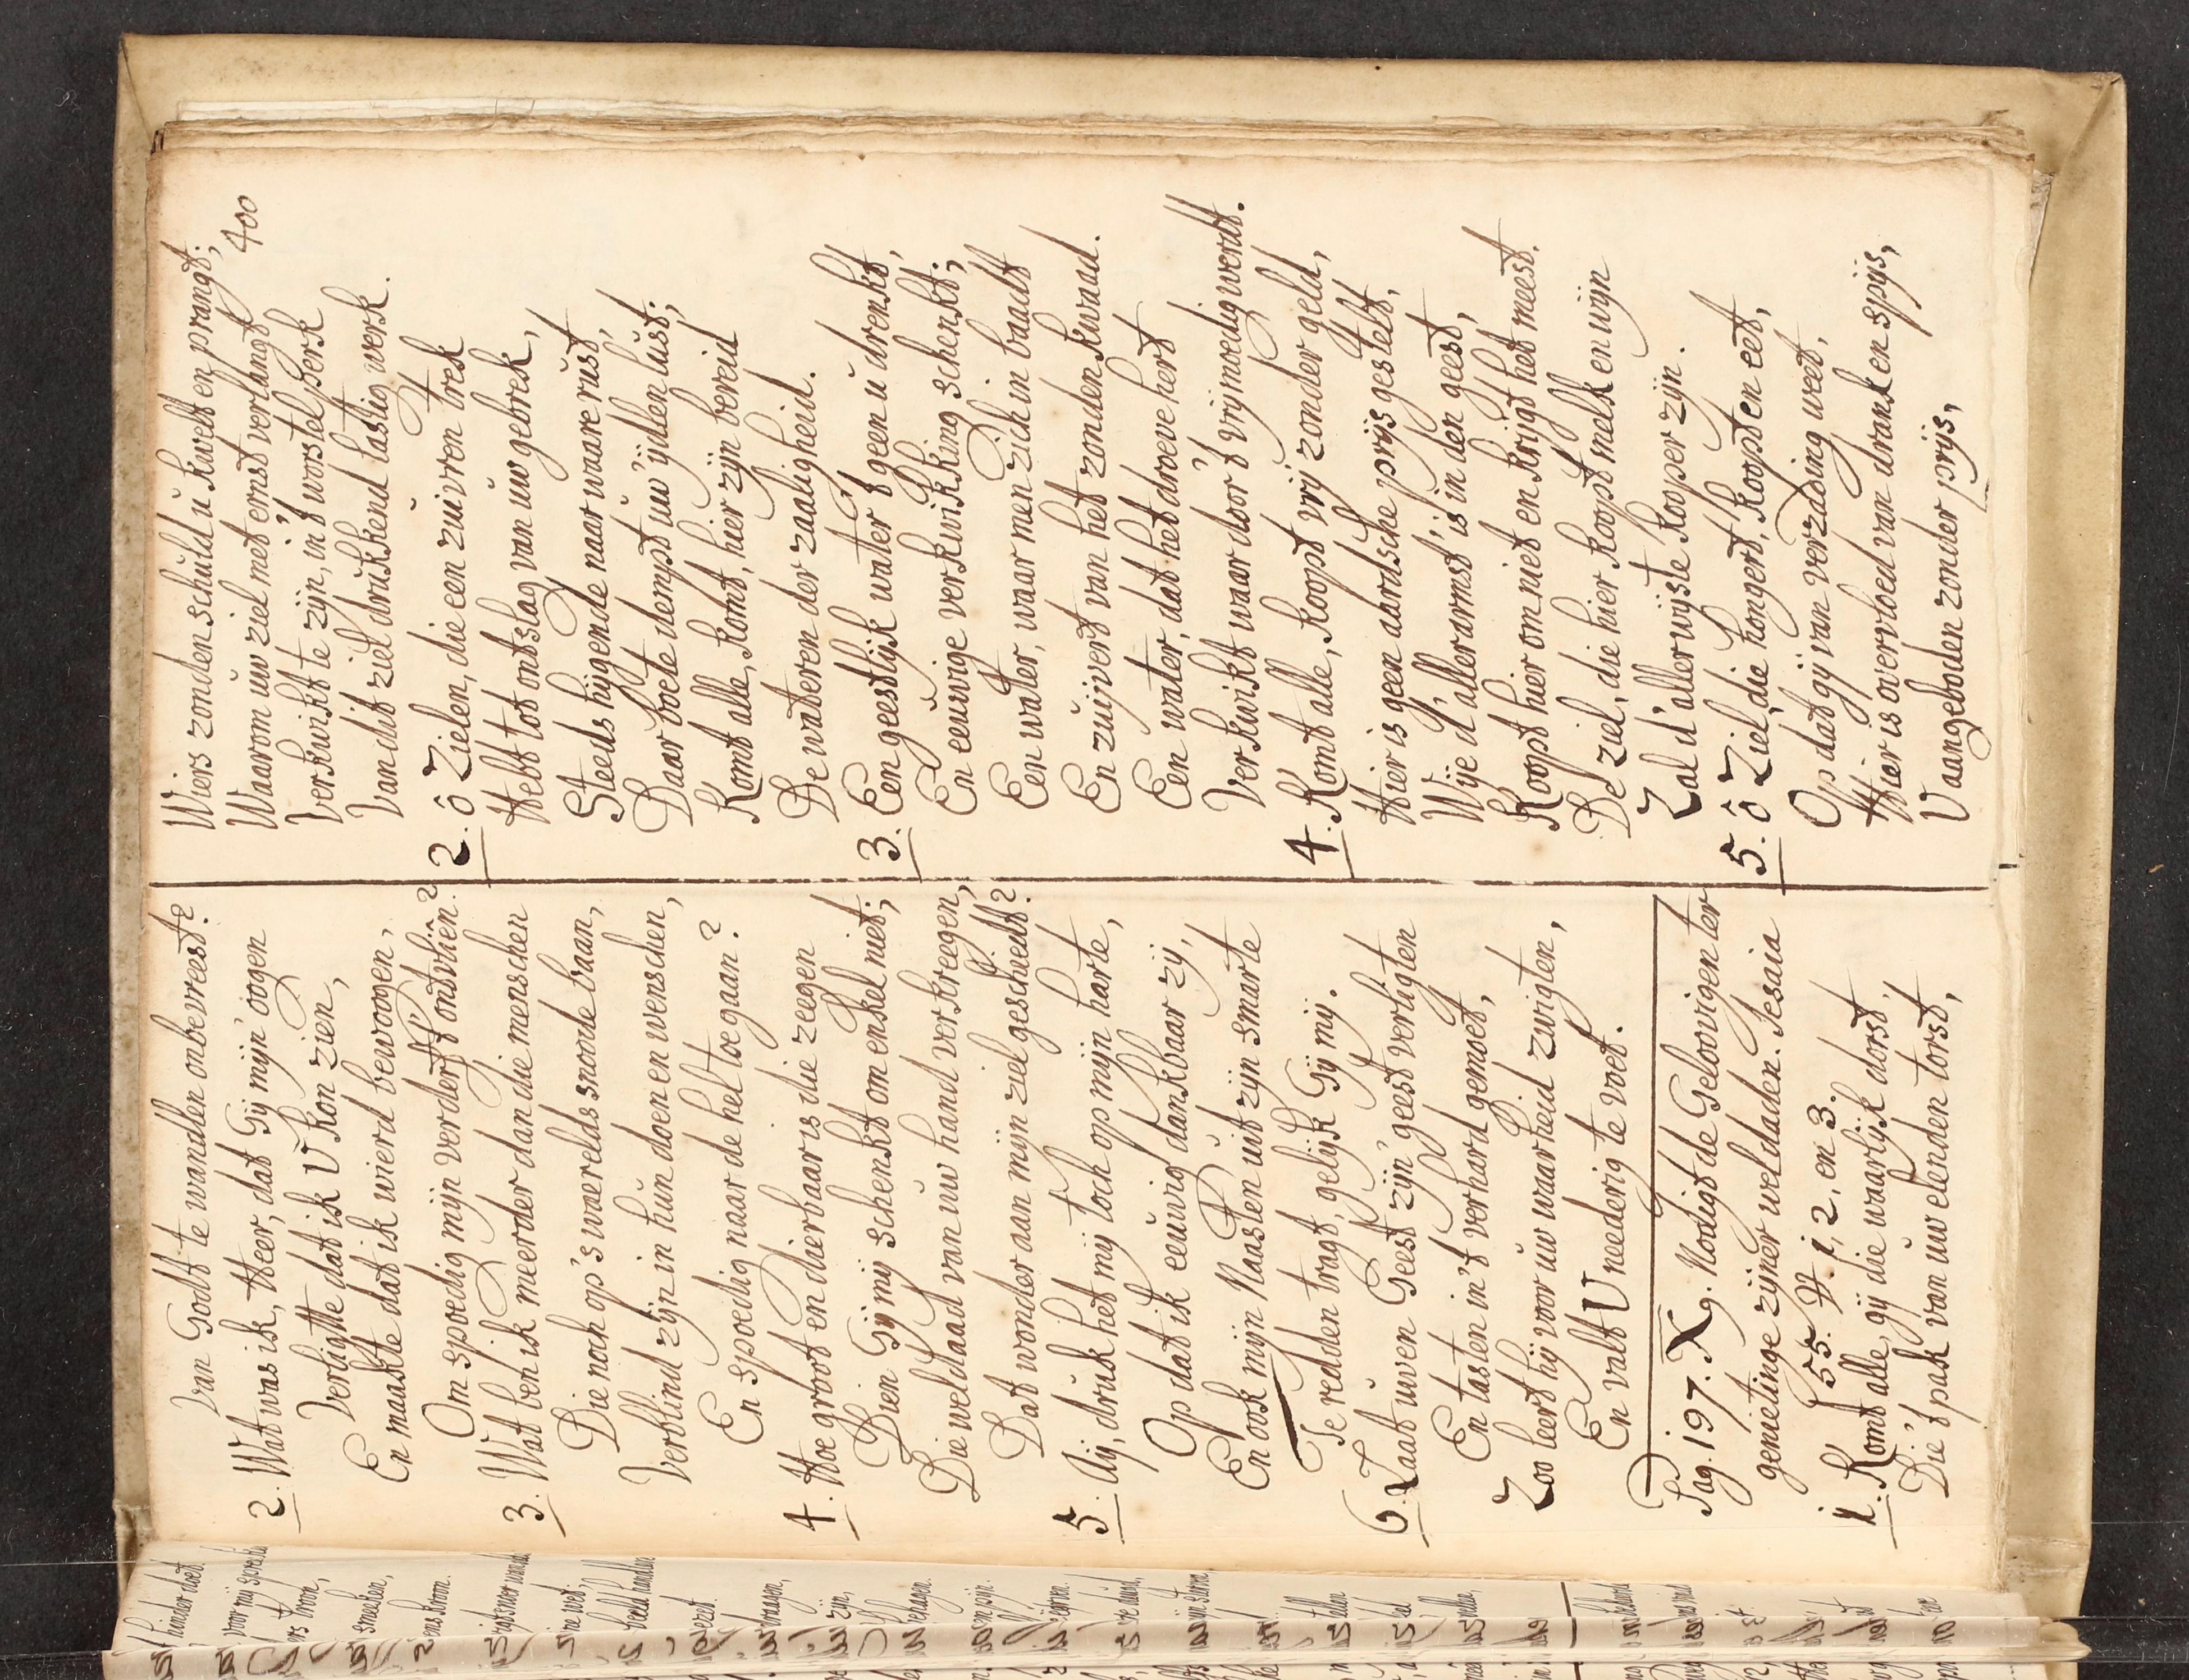 Van Godt te wandlen onbevreest?
2. Wat was ik, Heer, dat Gij mijn' oogen
Verligtte dat ik U kon zien,
En maakte dat ik wierd bewoogen,
Om spoedig mijn verderf t' ontvliên?
3. Wat ben ik meerder dan die menschen
Die noch op 's waerelds snoode baan,
Verblind zijn in hun doen en wenschen,
En spoedig naar de hel toe gaan?
4. Hoe groot en dierbaar is die zeegen
Dien Gij mij schenkt om enkel niet;
Die weldaad van uw hand verkreegen,
Dat wonder aan mijn ziel geschiedt?
5. Aij, druk het mij toch op mijn harte,
Op dat ik eeuwig dankbaar zij,
En ook mijn Naasten uit zijn smarte
Te redden tragt, gelijk Gij mij.
6. Laat uwen Geest zijn' geest verligten
En tasten in 't verhard gemoet,
Zoo leert hij voor uw waarheid zwigten,
En valt U neederig te voet.
Pag. 197. X g. Nodigt de Geloovigen ter
genietinge zijner weldaden. Jesaia
55. ℣. 1, 2, en 3.
1. Komt alle, gij die waarlijk dorst,
Die 't pak van uw elenden torst,
Wiers zonden schuld u kwelt en prangt;
Waarom uw ziel met ernst verlangt
400
Verkwikt te zijn, in 't worstelperk
Van dit ziel drukkend lastig werk.
2. ô Zielen, die een zuivren trek
Hebt tot ontslag van uw gebrek,
Steeds hijgende naar waare rust,
Daar boete dempt uw' ijdlen lust;
Komt alle, komt, hier zijn bereid
De wateren der zaaligheid.
3. Een geestlijk water 't geen u drenkt,
En eeuwige verkwikking schenkt;
Een water, waar men zich in baadt
En zuijvert van het zonden kwaad.
Een water, dat het droeve hert
Verkwikt waar door 't vrijmoedig werdt.
4. Komt alle, koopt vrij zonder geld,
Hier is geen aardsche prijs gestelt,
Wije d' allerarmst' is in den geest,
Koopt hier om niet en krijgt het meest.
De ziel, die hier koopt melk en wijn
Zal d' allerwijste kooper zijn.
5. ô Ziel, die hongert, koopt en eet,
Op dat gij van verzading weet,
Hier is overvloed van drank en spijs,
U aangeboden zonder prijs,